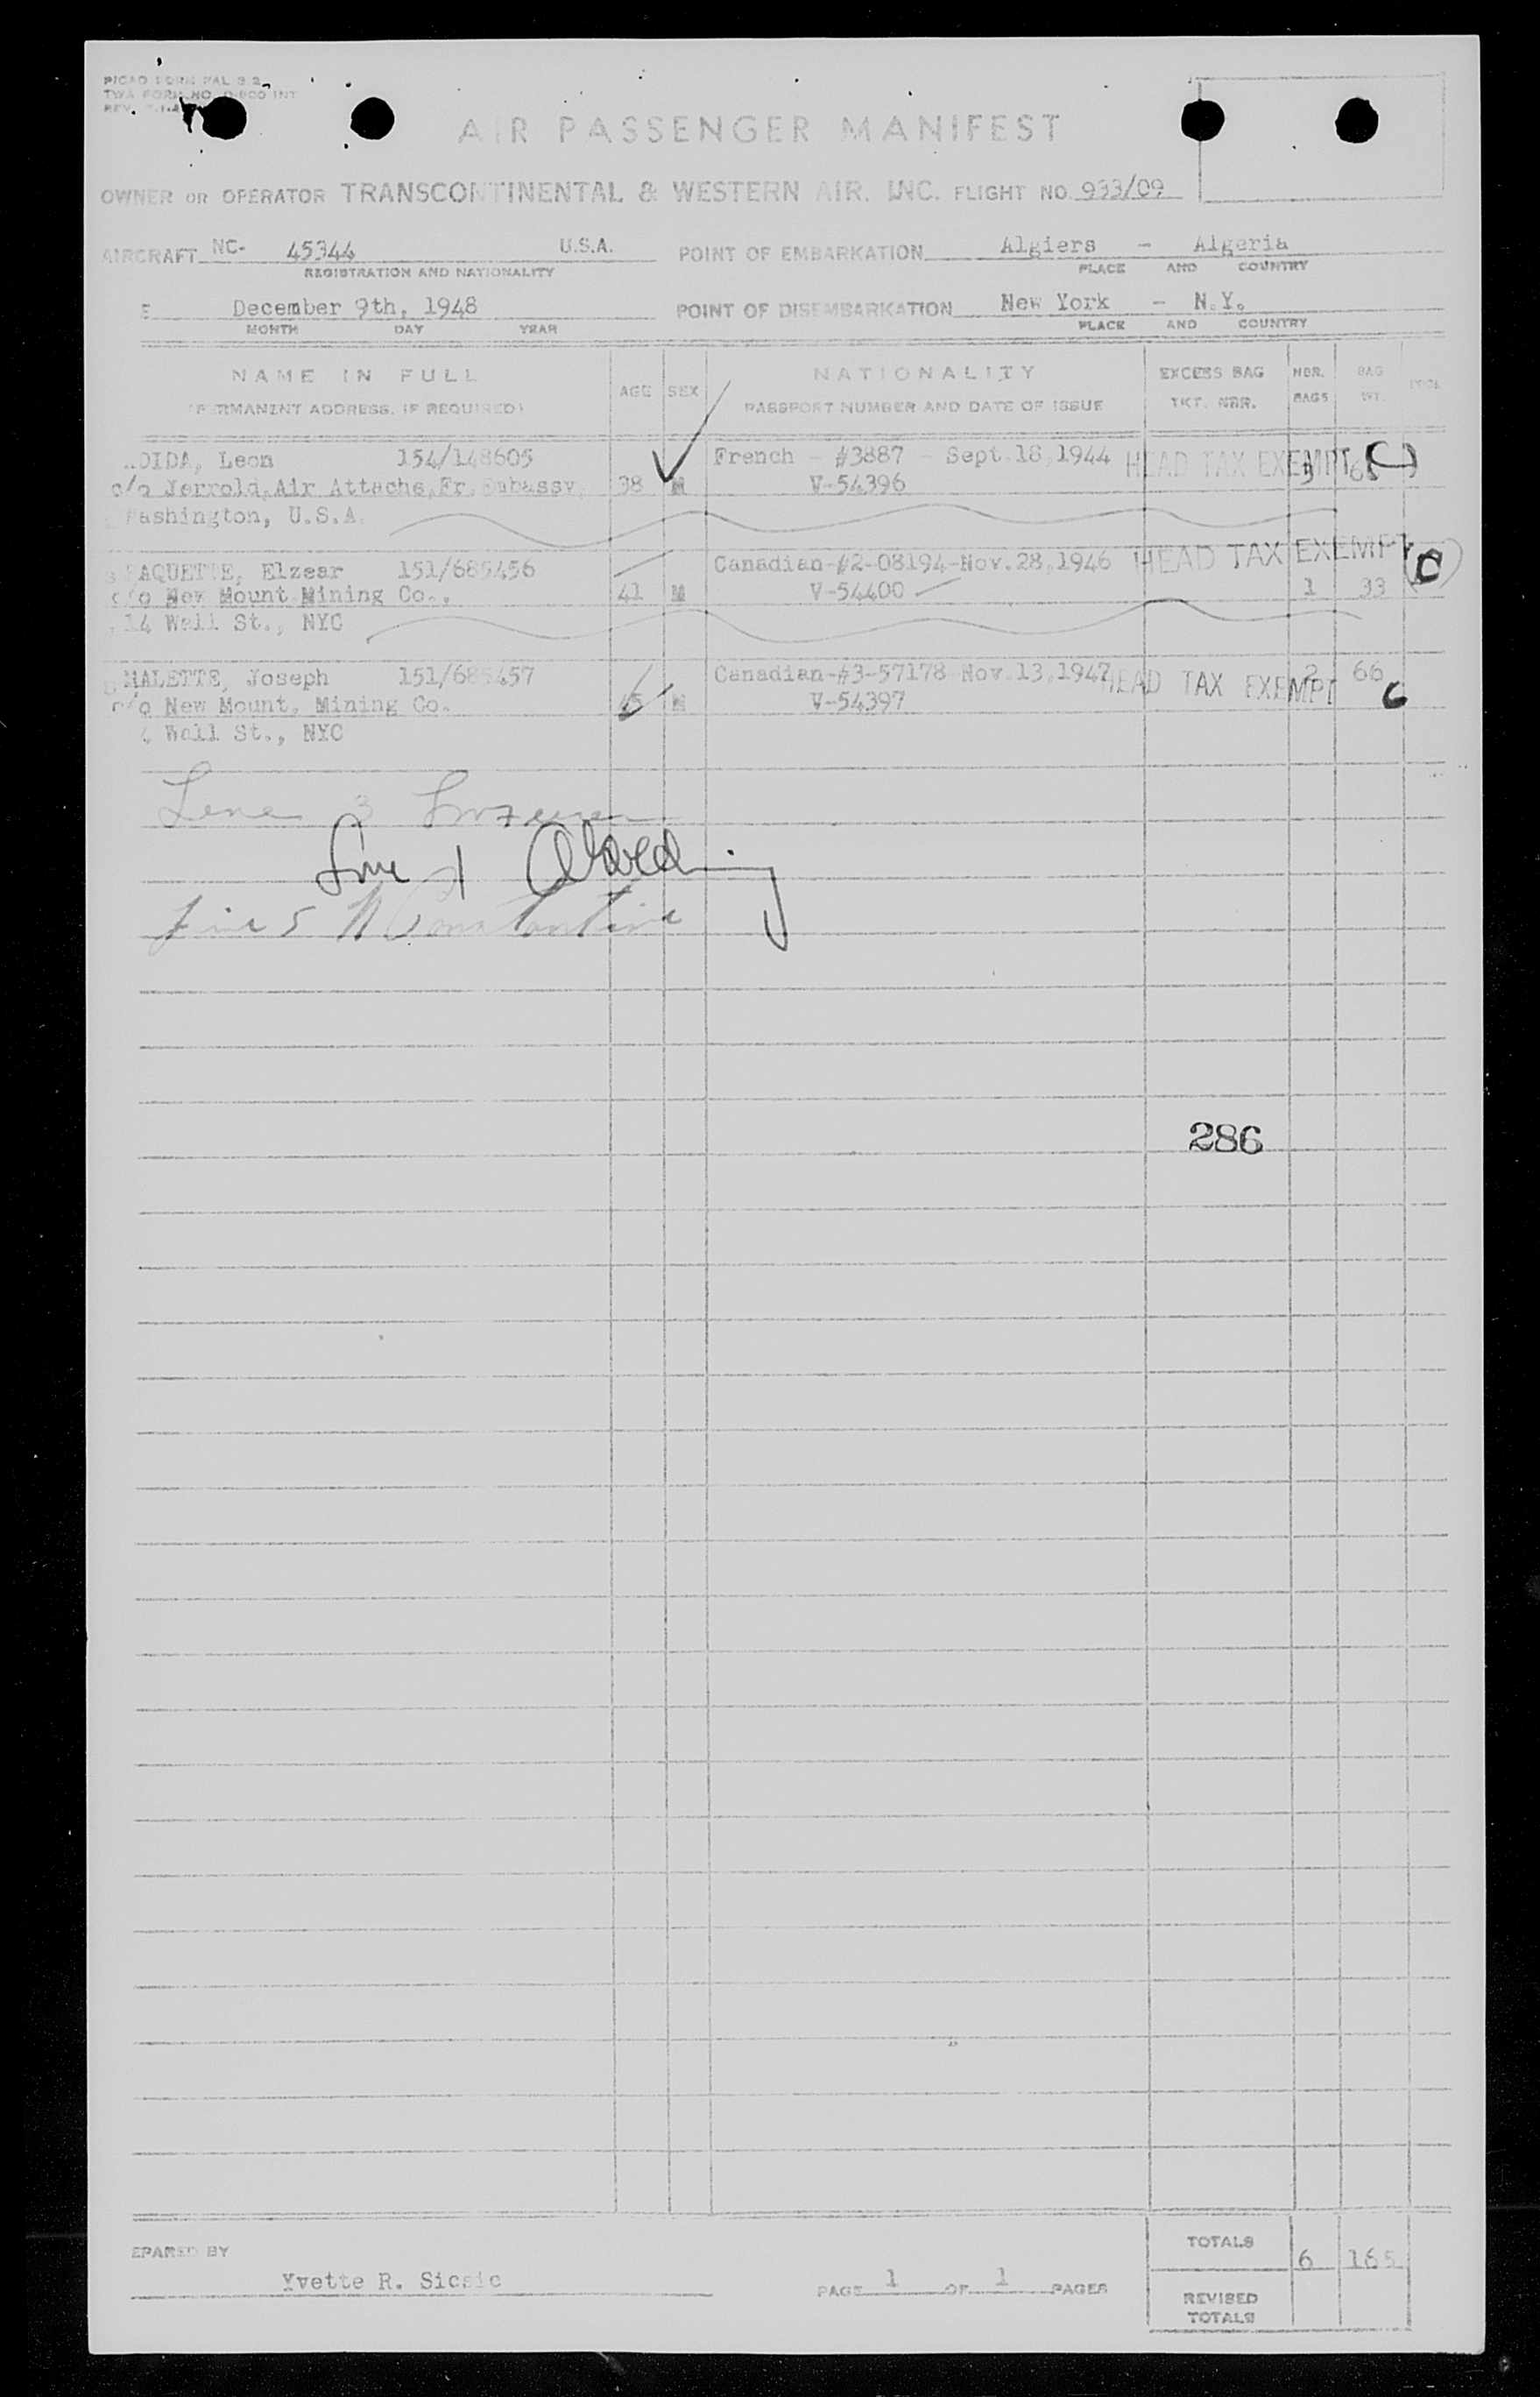 PICAO FORM PAL 3 2
TWA FORM NO.
REV.
AIR PASSENGER MANIFEST
OWNER OR OPERATOR TRANSCONTINENTAL & WESTERN AIR. INC. FLIGHT NO. 933/09
AIRCRAFT NC- 45344 U.S.A. POINT OF EMBARKATION Algiers - Algeria
REGISTRATION AND NATIONALITY PLACE AND COUNTRY
E December 9th, 1948 POINT OF DISEMBARKATION New York - N.Y.
MONTH DAY YEAR PLACE AND COUNTRY
NAME IN FULL AGE SEX NATIONALITY EXCESS BAG NBR. BAG
(PERMANENT ADDRESS, IF REQUIRED) PASSPORT NUMBER AND DATE OF ISSUE TKT. NBR. BAGS WT.
OIDA, Leon 154/148605 French - #3887 - Sept.18,1944 HEAD TAX EXEMPT
c/o Jerrold,Air Attache,Fr.Embassy, 38 M V-54396 3
Washington, U.S.A.
PAQUETTE, Elzear 151/685456 Canadian-#2-08194-Nov.28,1946 HEAD TAX EXEMPT C
c/o New Mount Mining Co., 41 M V-54400 1 33
14 Wall St., NYC
MALETTE, Joseph 151/685457 Canadian-#3-57178-Nov.13,1947 HEAD TAX EXEMPT 2 66
c/o New Mount, Mining Co. 45 M V-54397 C
Wall St., NYC
Line 3
Line
Line 5 Constantine
286
EPARED BY
Yvette R. Sicsic
PAGE 1 OF 1 PAGES
TOTALS 6 165
REVISED
TOTALS